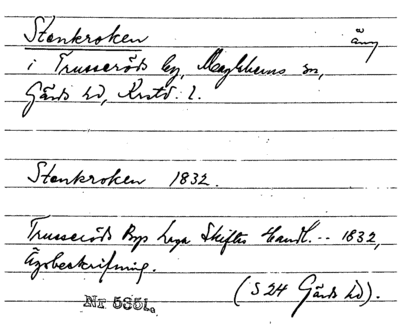 Stenkroken äng
i Trusseröds by, Maglehems sn,
Gärds hd, Krstd. l.
Stenkroken 1832.
Trusseröds Bys Laga Skiftes Handl. -- 1832,
Ägobeskrifning.
(S 24 Gärds hd).
Nr 5651.